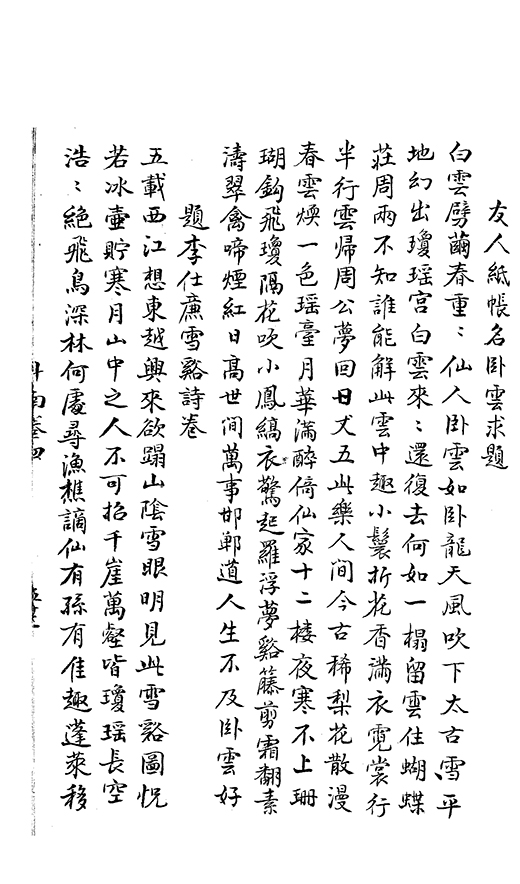 友人紙帳名卧雲求題
白雲劈繭春重〻仙人卧雲如卧龍天風吹下太古雪平
地幻出瓊瑶宫白雲來〻還復去何如一榻留雲住蝴蝶
莊周兩不知誰能解此雲中趣小鬟折花香滿衣霓裳行
半行雲帰周公夢回日丈五此樂人間今古稀梨花散漫
春雲煥一色瑶臺月華滿醉倚仙家十二楼夜寒不上珊
瑚鈎飛瓊隔花吹小鳳縞衣驚起羅浮夢谿藤剪霜翻素
濤翠禽啼煙紅日髙世间萬事邯鄲道人生不及卧雲好
題李仕廉雪谿詩卷
五載西江想東越興來欲蹋山陰雪眼明見此雪谿圖恍
若冰壷貯寒月山中之人不可招千崖萬壑皆瓊瑶長空
浩〻絶飛鳥深林何處尋漁樵謫仙有孫有佳趣蓬萊移